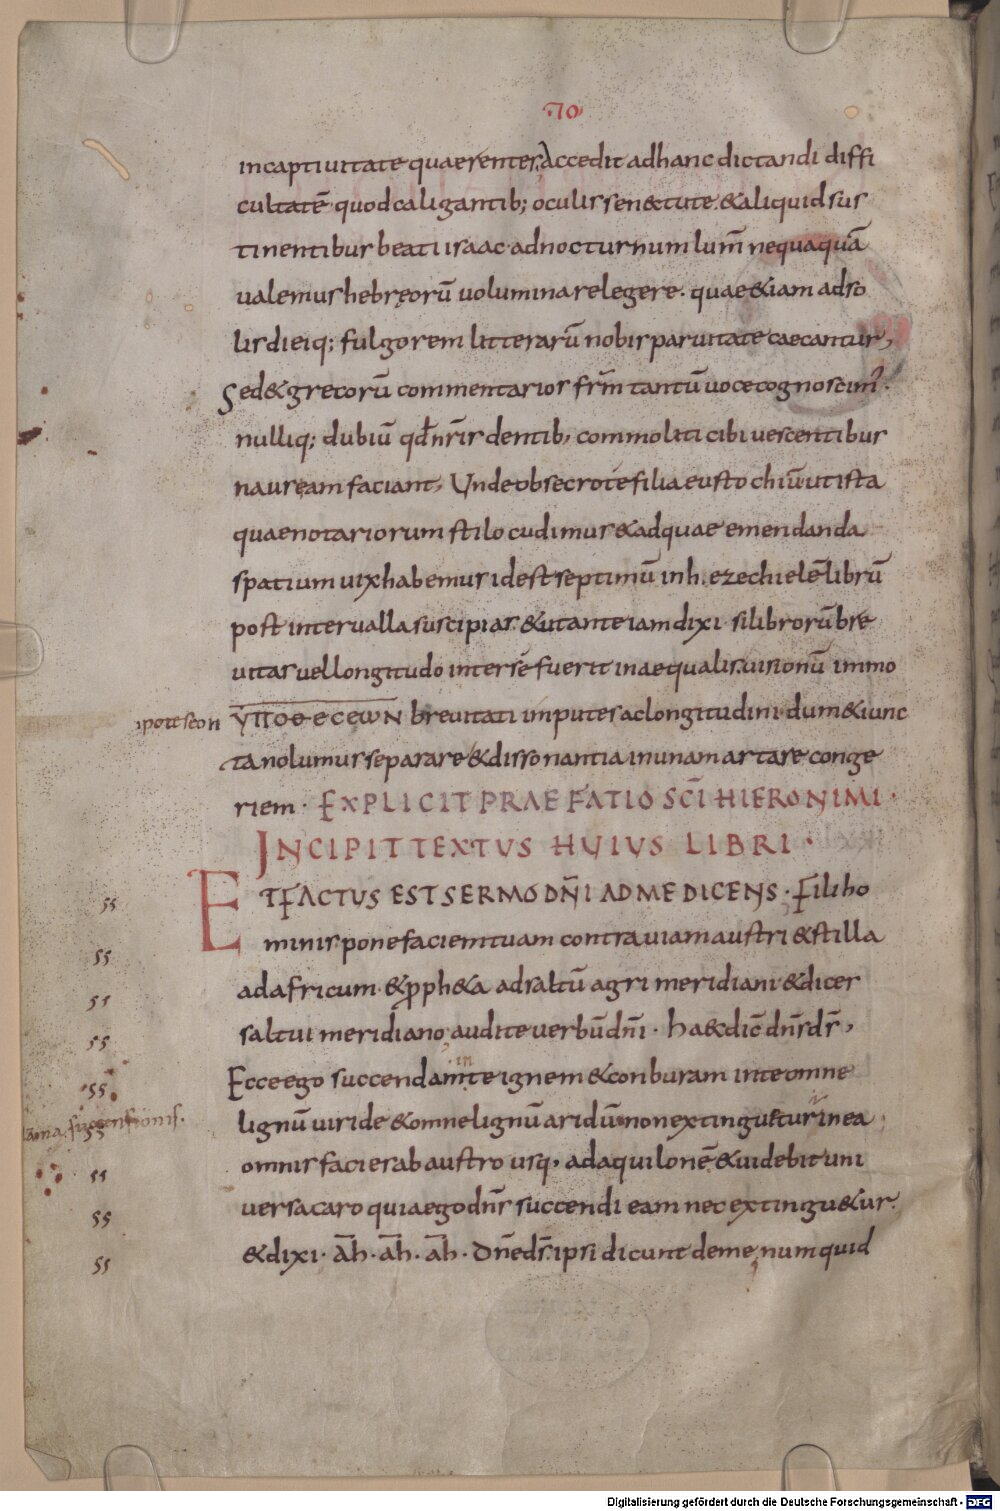 ·70·
in captiuitate quaerenter. Accedit ad hanc dictandi diffi
cultatē quod caligantib; oculis senectute & aliquid sus
tinentibus beati isaac· ad nocturnum lum̄ nequaquā
ualemus hebręorū uolumina relegere· quae &iam ad so
lis dieiq; fulgorem litterarū nobis paruitate caecantur,
Sed & grecorū commentarios frm̄ tantū uoce cognoscim'·
nulliq; dubiū qđ nr̄is dentib, commoliti cibi uescentibus
nauseam faciant, Unde obsecro te filia eustochiū ut ista
quae notariorum stilo cudimus & ad quae emendanda
spatium uix habemus id est septimū in h.ezechielē librū
post interualla suscipias· & ut ante iam dixi· si librorū bre
uitas uel longitudo inter sē fuerit inaequalis· uisionū immo
ipoteseon ΥΠΟΘΕCΕωΝ breuitati imputes ac longitudini· dum & iunc
ta nolumus separare & dissonantia in unam artare conge
riem· EXPLICIT PRAEFATIO SCĪ HIERONIMI·
INCIPIT TEXTUS HUIUS LIBRI·
ET FACTUS EST SERMO DN̄I AD ME DICENS· Fili ho
minis pone faciem tuam contra uiam austri & stilla
ad africum· & proph&a ad saltū agri meridiani· & dices
saltui meridiano audite uerbū dn̄i· haec dic̄ dn̄s ds̄,
Ecce ego succendam in te ignem & conburam in te omne
lignū uiride & omne lignū aridū non extinguetur in ea
omnis facies ab austro usq, ad aquilonē & uidebit uni
uersa caro quia ego dn̄s succendi eam nec extingu&ur·
& dixi· āh· āh· āh· dn̄e ds̄· ipsi dicunt de me, numquid
ss
ss
ss
ss
ss
ss
ss
ss
ss
Digitalisierung gefördert durch die Deutsche Forschungsgemeinschaft - DFG